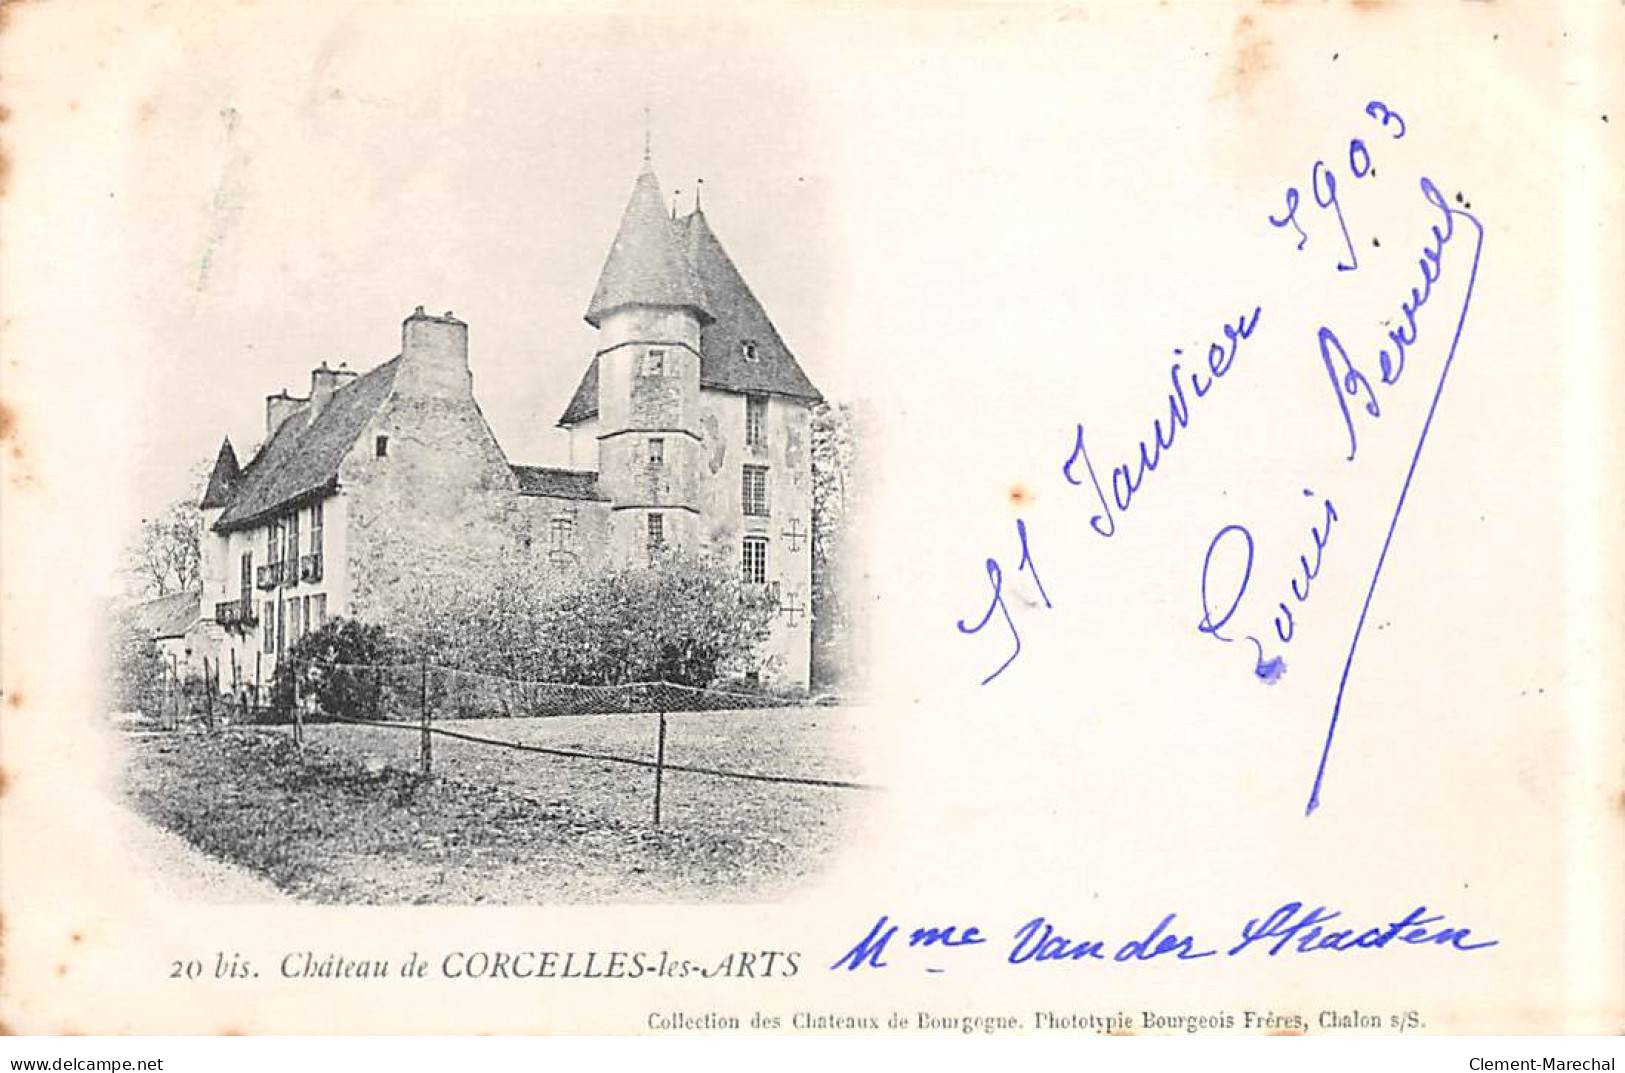 11 Janvier 1903
Louis
20 bis. Château de CORCELLES-les-ARTS
Mme Van der Stracten
Collection des Chateaux de Bourgogne. Phototypie Bourgeois Frères, Chalon s/S.
delcampe.net
Clement-Marechal